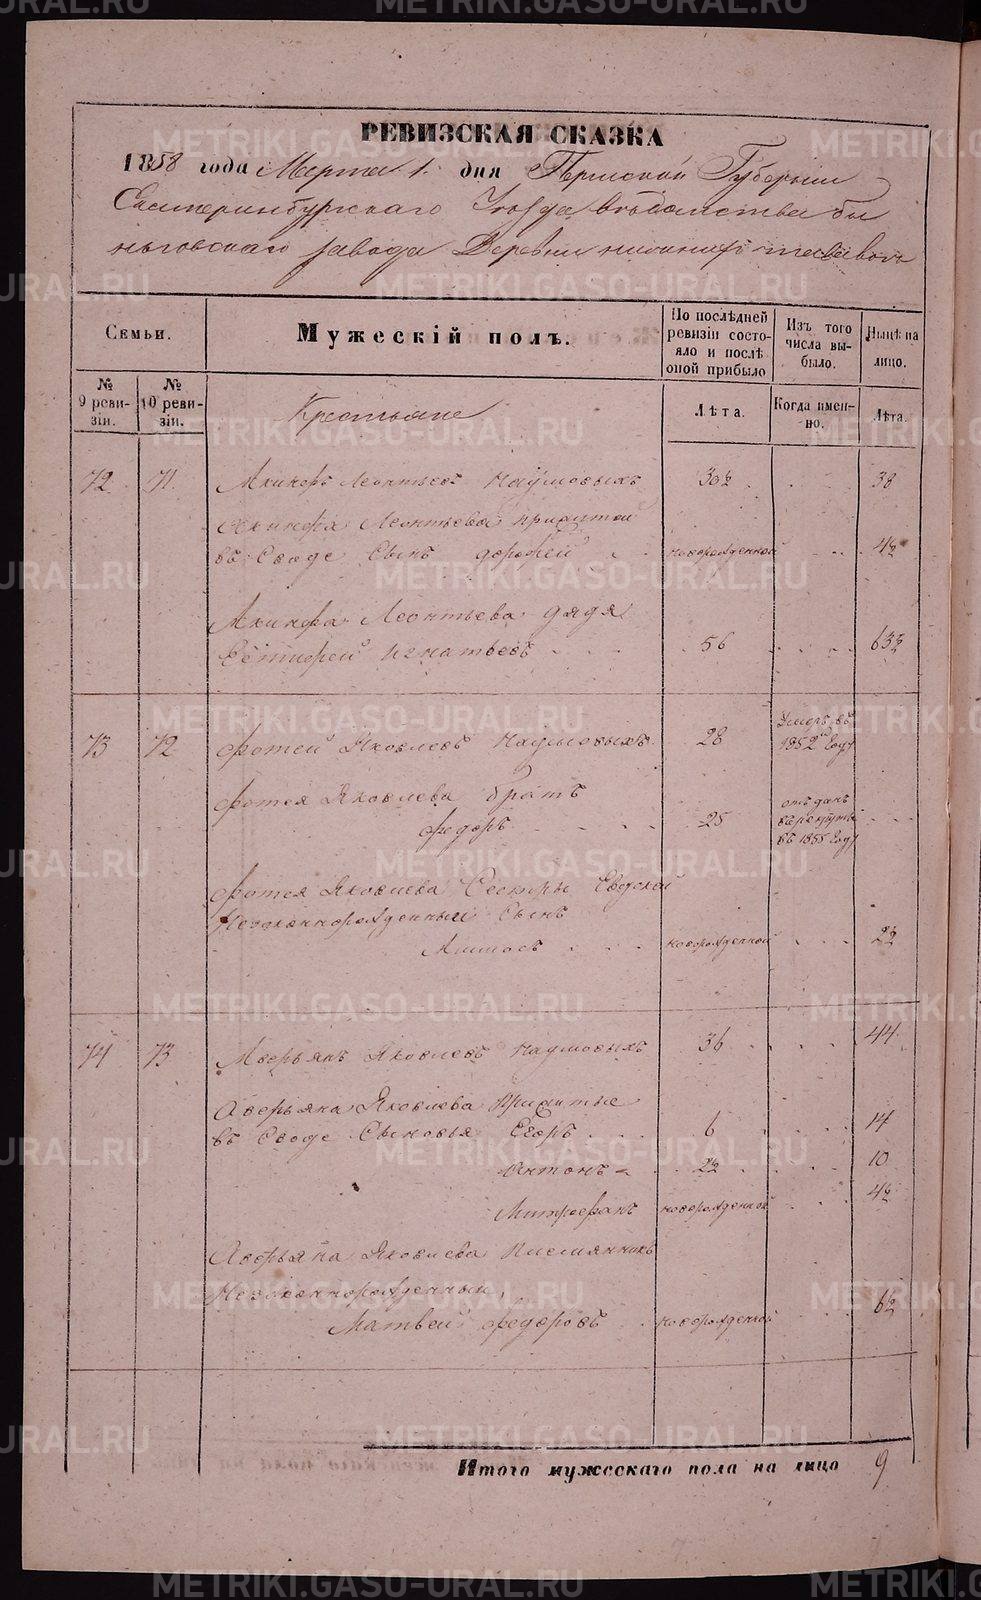 РЕВИЗСКАЯ СКАЗКА
1858 года Марта 1. дня Пермской Губернии
Екатеринбургскаго Уезда ведомства бы
ньговскаго завода Деревни нижнихъ таволовъ
Семьи. Мужескій полъ. По послѣдней ревизіи состояло и послѣ оной прибыло Изъ того числа выбыло. Нынѣ на лицо.
№ 9 ревизіи. № 10 ревизіи. Крестьяне Лѣта. Когда именно. Лѣта.
72 71 Акинфъ Леонтьевъ Наумовыхъ 30½ 38
Акинфа Леонтьева принятой
въ Сводѣ Сынъ дорофей новорожденной 4½
Акинфа Леонтьева дядя
Естифей Игнатьевъ 56 63½
73 72 Фотей Яковлевъ Наумовыхъ 28 Умеръ въ 1852 Году
Фотея Яковлева Братъ
федоръ 25 отъданъ въ рекруты въ 1855 Году
Фотея Яковлева Сестры Евдокеи
Незаконнорожденный Сынъ
Амосъ новорожденной 2½
74 73 Аверьянъ Яковлевъ Наумовыхъ 36 44
Аверьяна Яковлева Принятые
въ Сводѣ Сыновья Егоръ 6 14
Антонъ 2½ 10
Митрофанъ новорожденной 4½
Аверьяна Яковлева Писмянникъ
Незаконнорожденный
Матвей федоровъ новорожденной 6½
Итого мужескаго пола на лицо 9
METRIKI.GASO-URAL.RU